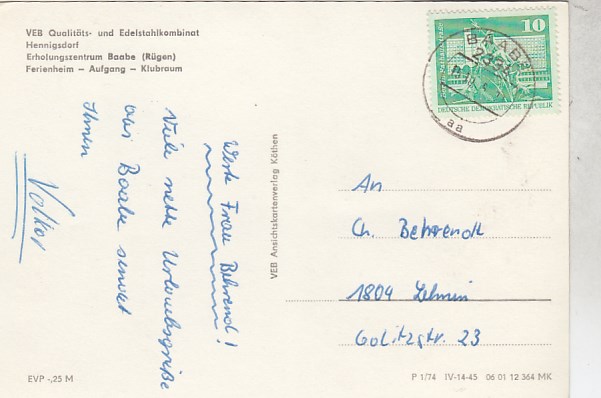 VEB Qualitäts- und Edelstahlkombinat
Hennigsdorf
Erholungszentrum Baabe (Rügen)
Ferienheim – Aufgang – Klubraum
Werte Frau Behrend!
Viele nette Urlaubsgrüße
aus Baabe sendet
Ihnen
Volker
VEB Ansichtskartenverlag Köthen
10
DEUTSCHE DEMOKRATISCHE REPUBLIK
BAABE
aa
An
Ch. Behrendt
1804 Lehnin
Golitzstr. 23
EVP -,25 M
P 1/74 IV-14-45 06 01 12 364 MK